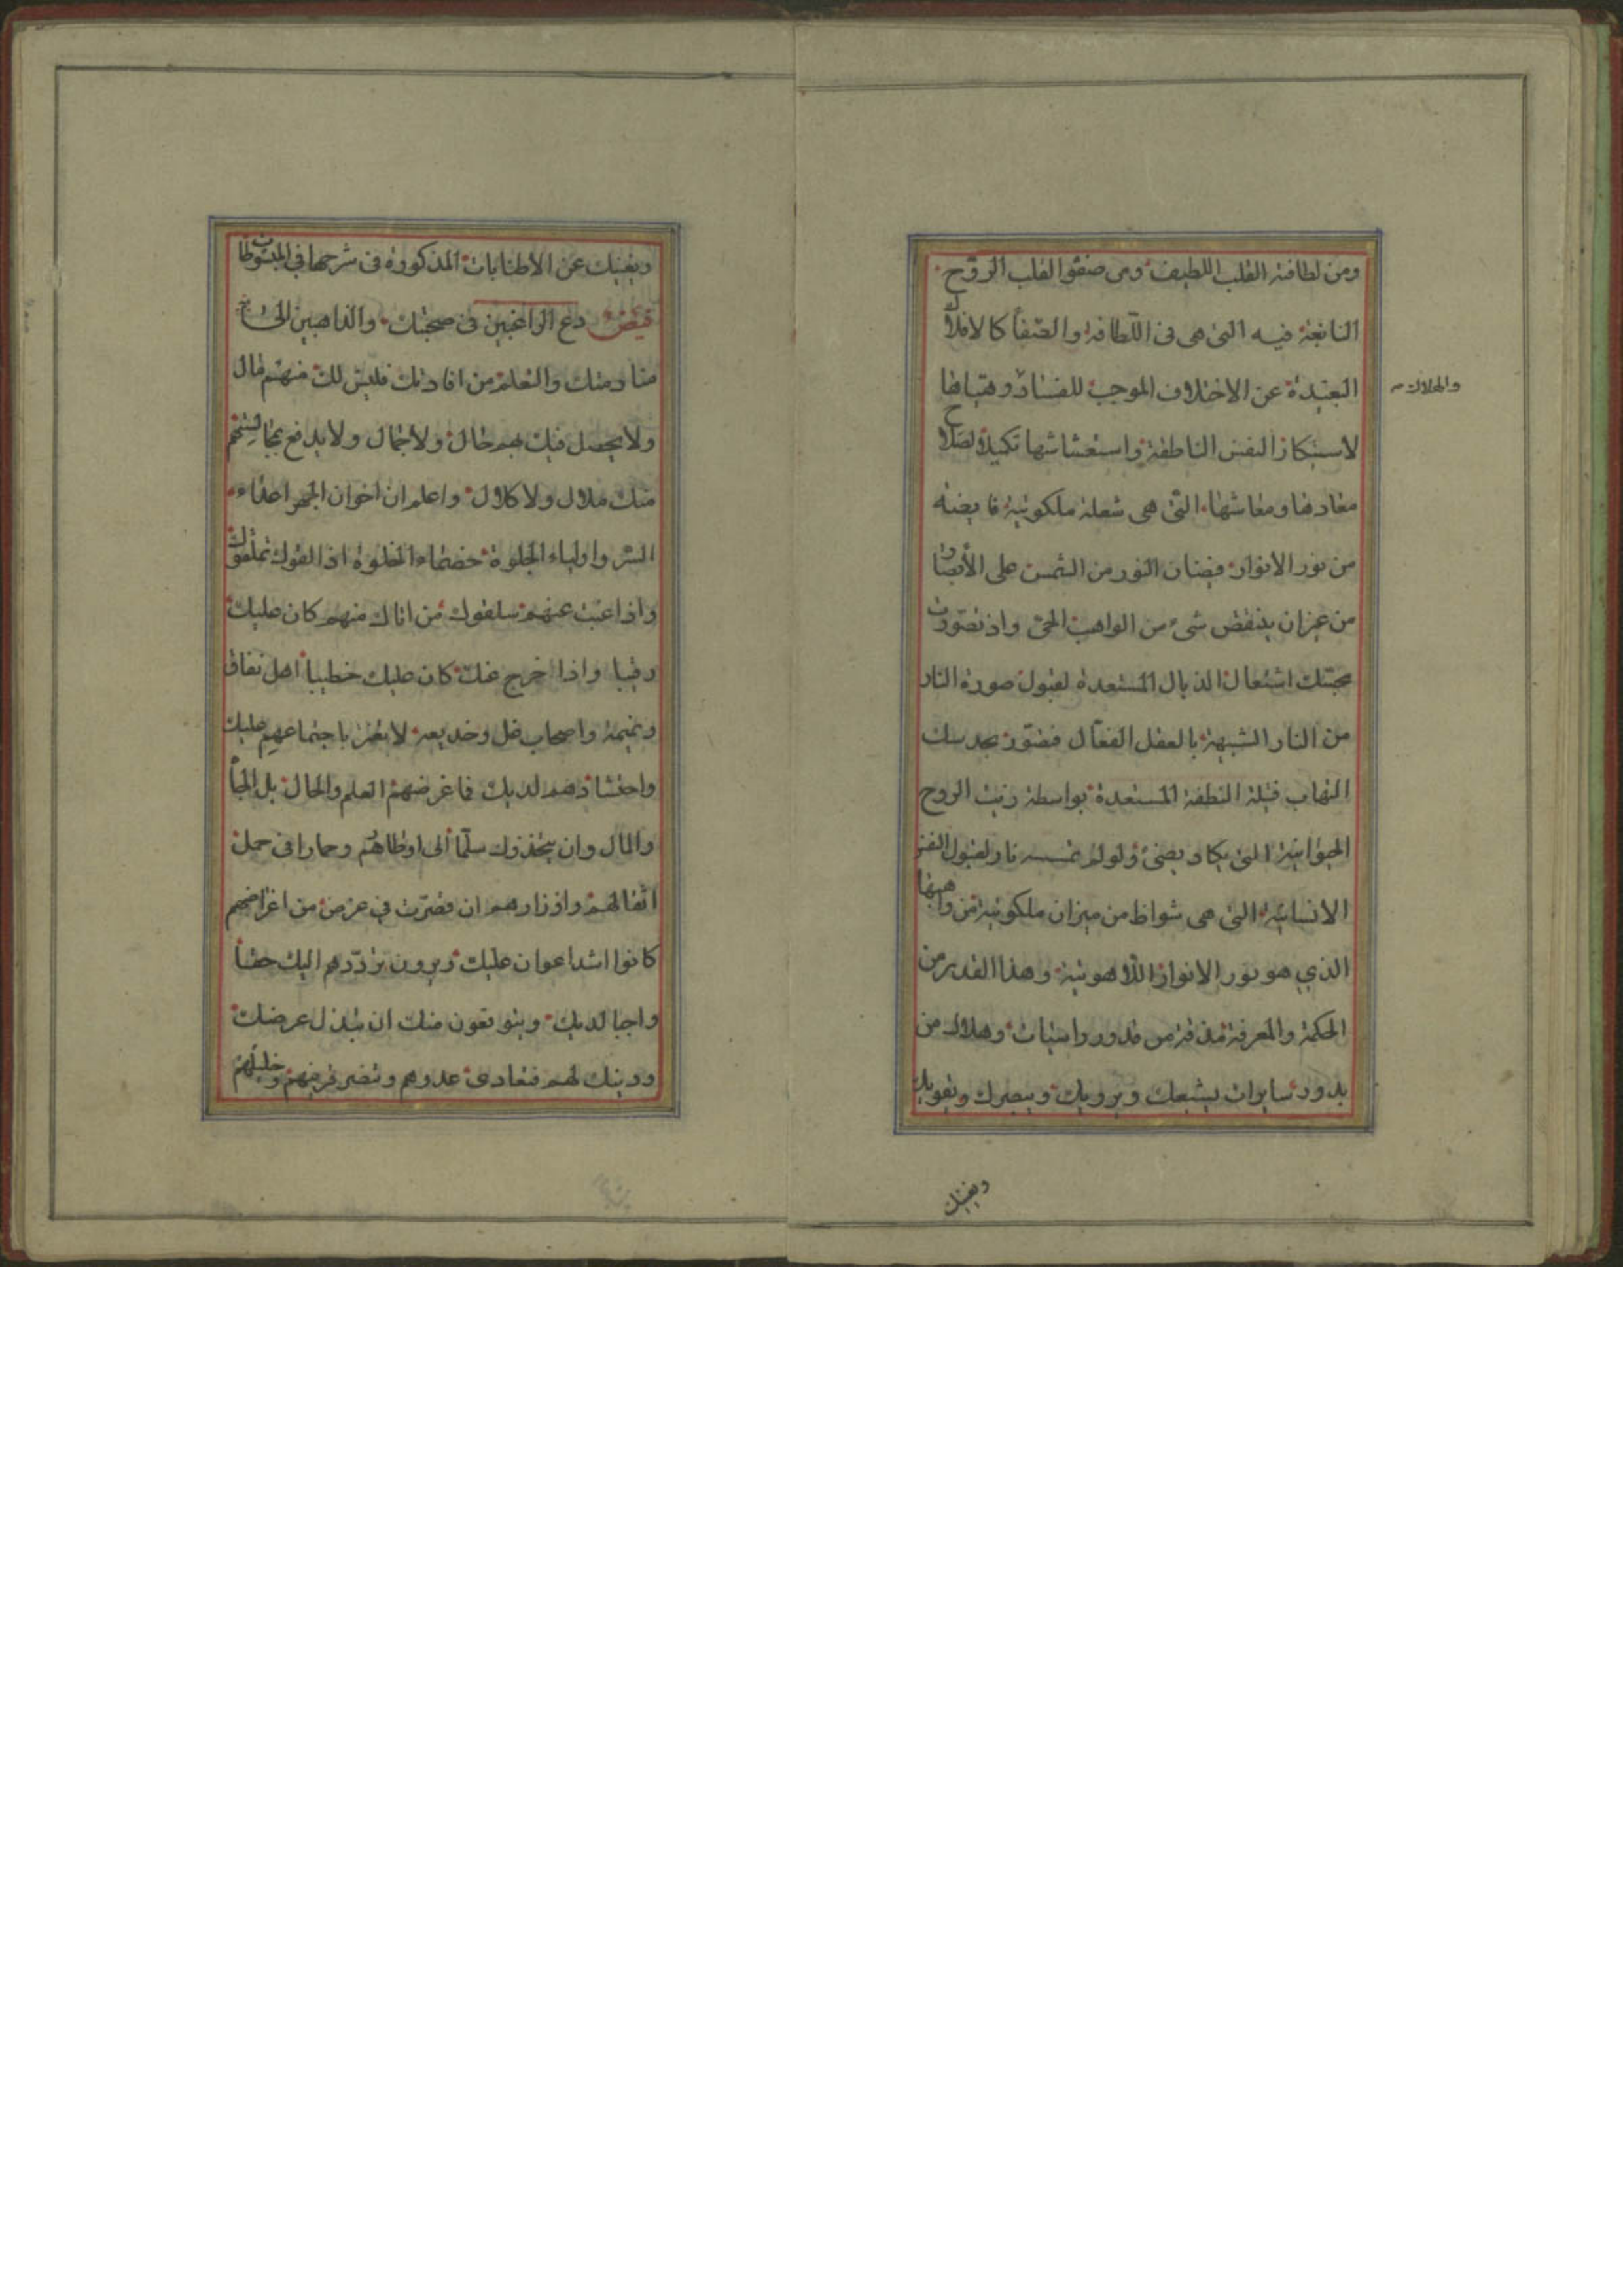 ومن لطافة القلب اللطيف ومن صفو القلب الروح
النابغة فيه التي هي في اللطافة والصفا كالافلاك
البعيدة عن الاختلاف الموجب للفساد وهياها
والهلاك
لاستيكار النفس الناطقة واستعشاشها تكميلا لصلاح
معادها ومعاشها التي هي شعلة ملكوتية فايضة
من نور الانوار فيضان النور من الشمس على الأبصار
من غير ان ينقض شيء من الواهب الحق واذ تصورت
محبتك اشتعال الذبال المستعدة لقبول صورة النار
من النار الشبيهة بالعقل الفعال فصور بحدسك
التهاب فتيلة النطفة المستعدة بواسطة زيت الروح
الحيوانية التي يكاد يضيء ولو لم تمسسه نار لقبول النفس
الانسانية التي هي شواظ من ميزان ملكوتية من واهبها
الذي هو نور الانوار اللاهوتية وهذا القدر من
الحكمة والمعرفة مذقة من قدور راسيات وهلال من
بدور سايرات يشبعك ويرويك وينصرك ويقويك
ويغنيك
ويغنيك عن الاطنابات المذكورة في شرحها في المبسوطات
قبض دع الراغبين في صحبتك والذاهبين الى
منادمتك والتعلم من افادتك فليس لك منهم مال
ولا يحصل فيك بهم حال ولا جمال ولا يدفع بمجالستهم
منك ملال ولا كلال واعلم ان اخوان الجهر اعداء
السر واولياء الجلوة خصماء الخلوة اذا لقوك تملقوك
واذا غبت عنهم سلقوك من اتاك منهم كان عليك
رقيبا واذا خرج عنك كان عليك خطيبا اهل نفاق
ونميمة واصحاب غل وخديعة لا تغتر باجتماعهم عليك
واحتشادهم لديك فما غرضهم العلم والحال بل الجاه
والمال وان يتخذوك سلما الى اوطارهم وحمارا في حمل
اثقالهم واوزارهم ان قصرت في غرض من اغراضهم
كانوا اشد اعوان عليك ويرون ترددهم اليك حقا
واجبا لديك ويتوقعون منك ان تبذل عرضك
ودينك لهم فتعادي عدوهم وتنصر قريبهم وخليلهم